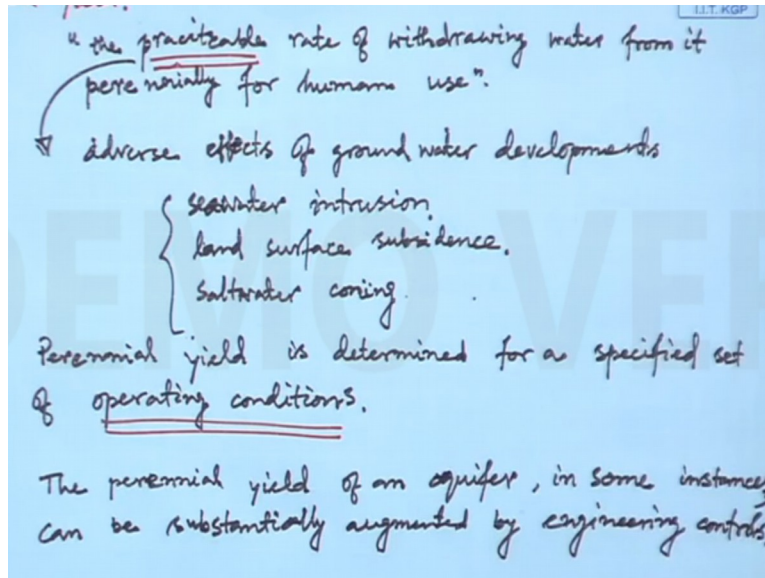 I.I.T. KGP
" the pracitcable rate of withdrawing water from it
perennially for human use".
adverse effects of ground water developments
seawater intrusion.
land surface subsidence.
Saltwater coning.
Perennial yield is determined for a specified set
of operating conditions.
The perennial yield of an aquifer, in some instances,
can be substantially augmented by engineering controls
DEMO VER